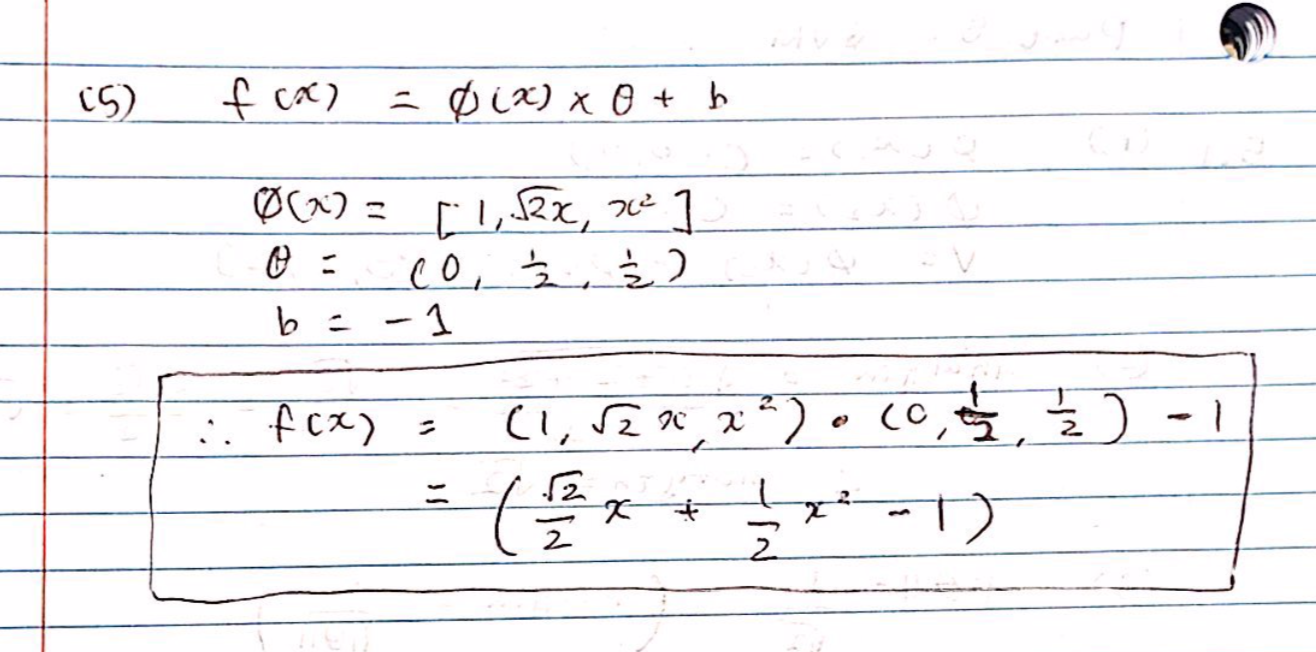 (5) f(x) = ϕ(x) × θ + b
ϕ(x) = [1, √2x, x²]
θ = (0, 1/2, 1/2)
b = -1
∴ f(x) = (1, √2 x, x²) • (0, 1/2, 1/2) - 1
= (√2/2 x + 1/2 x² - 1)